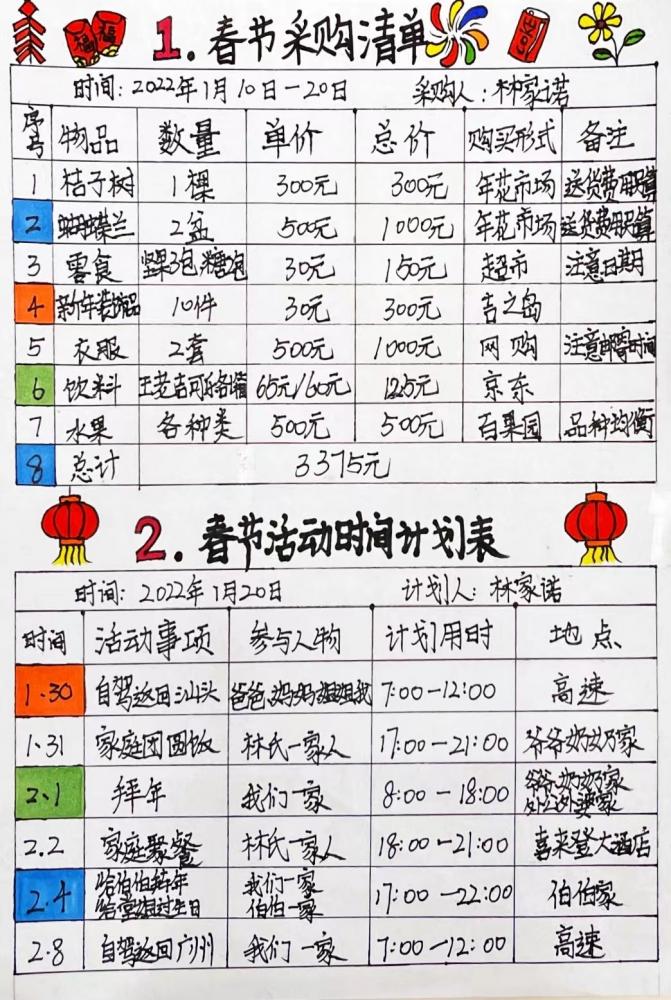 1.春节采购清单
时间:2022年1月10日-20日 采购人:林家诺
序号 物品 数量 单价 总价 购买形式 备注
1 桔子树 1棵 300元 300元 年花市场 送货费用预算
2 蝴蝶兰 2盆 500元 1000元 年花市场 送货费用预算
3 零食 坚果3包 糖2包 30元 150元 超市 注意日期
4 新年装饰品 10件 30元 300元 吉之岛
5 衣服 2套 500元 1000元 网购 注意邮寄时间
6 饮料 王老吉可乐各1箱 65元/60元 125元 京东
7 水果 各种类 500元 500元 百果园 品种均衡
8 总计 3375元
2.春节活动时间计划表
时间:2022年1月20日 计划人:林家诺
时间 活动事项 参与人物 计划用时 地点
1.30 自驾返回汕头 爸爸、妈妈姐姐我 7:00-12:00 高速
1.31 家庭团圆饭 林氏一家人 17:00-21:00 爷爷奶奶家
2.1 拜年 我们一家 8:00-18:00 爷爷奶奶家
外公外婆家
2.2 家庭聚餐 林氏一家人 18:00-21:00 喜来登大酒店
2.4 给伯伯拜年 我们一家 17:00-22:00 伯伯家
给堂姐过生日 伯伯一家
2.8 自驾返回广州 我们一家 7:00-12:00 高速